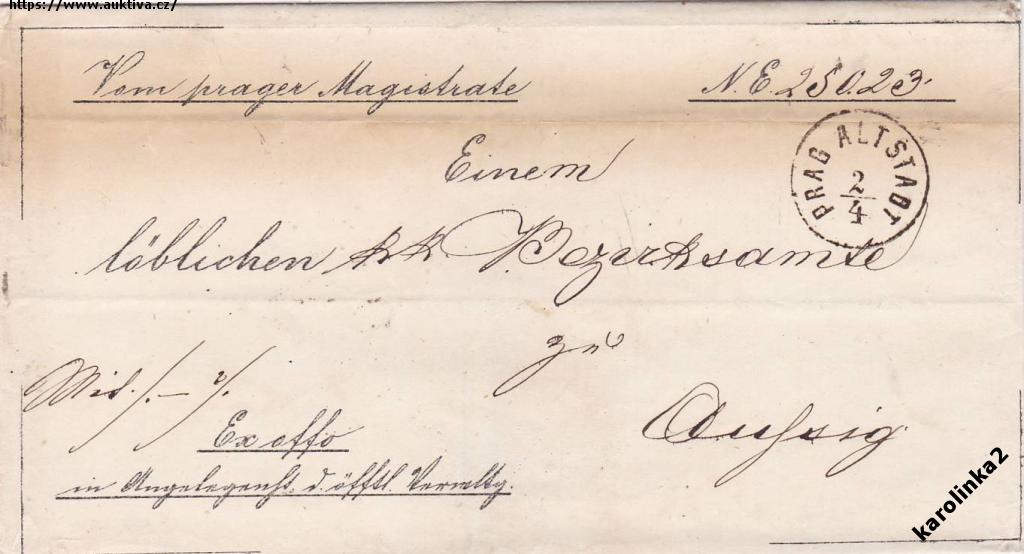 https://www.auktiva.cz/
Vom prager Magistrate
N. E. 25023.
PRAG ALTSTADT
2/4
Einem
löblichen kk Bezirksamte
zu
Aussig
Mit ./. — ./.
Ex offo
in Angelegenht. d. öfftl. Verwltg.
karolinka2